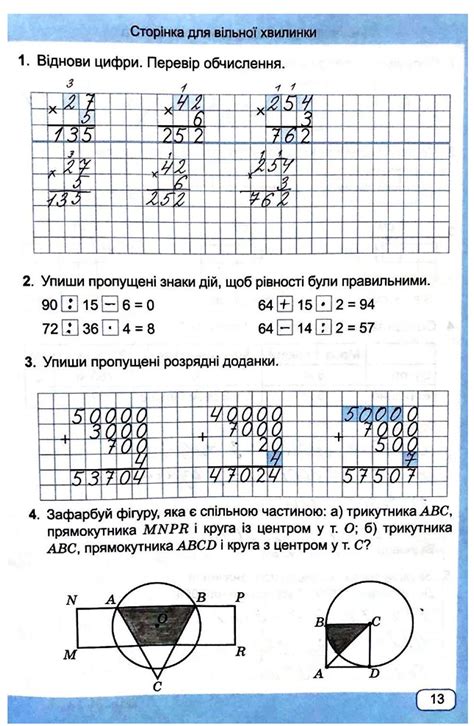 Сторінка для вільної хвилинки
1. Віднови цифри. Перевір обчислення.
3 1 1 1
× 27 × 42 × 254
5 6 3
135 252 762
3 1 1 1
× 27 × 42 × 254
5 6 3
135 252 762
2. Упиши пропущені знаки дій, щоб рівності були правильними.
90 : 15 − 6 = 0 64 + 15 · 2 = 94
72 : 36 · 4 = 8 64 − 14 : 2 = 57
3. Упиши пропущені розрядні доданки.
50000 40000 50000
+ 3000 + 7000 + 7000
700 20 500
4 4 7
53704 47024 57507
4. Зафарбуй фігуру, яка є спільною частиною: а) трикутника ABC,
прямокутника MNPR і круга із центром у т. O; б) трикутника
ABC, прямокутника ABCD і круга з центром у т. C?
N A B P
O
M R
C
B C
A D
13